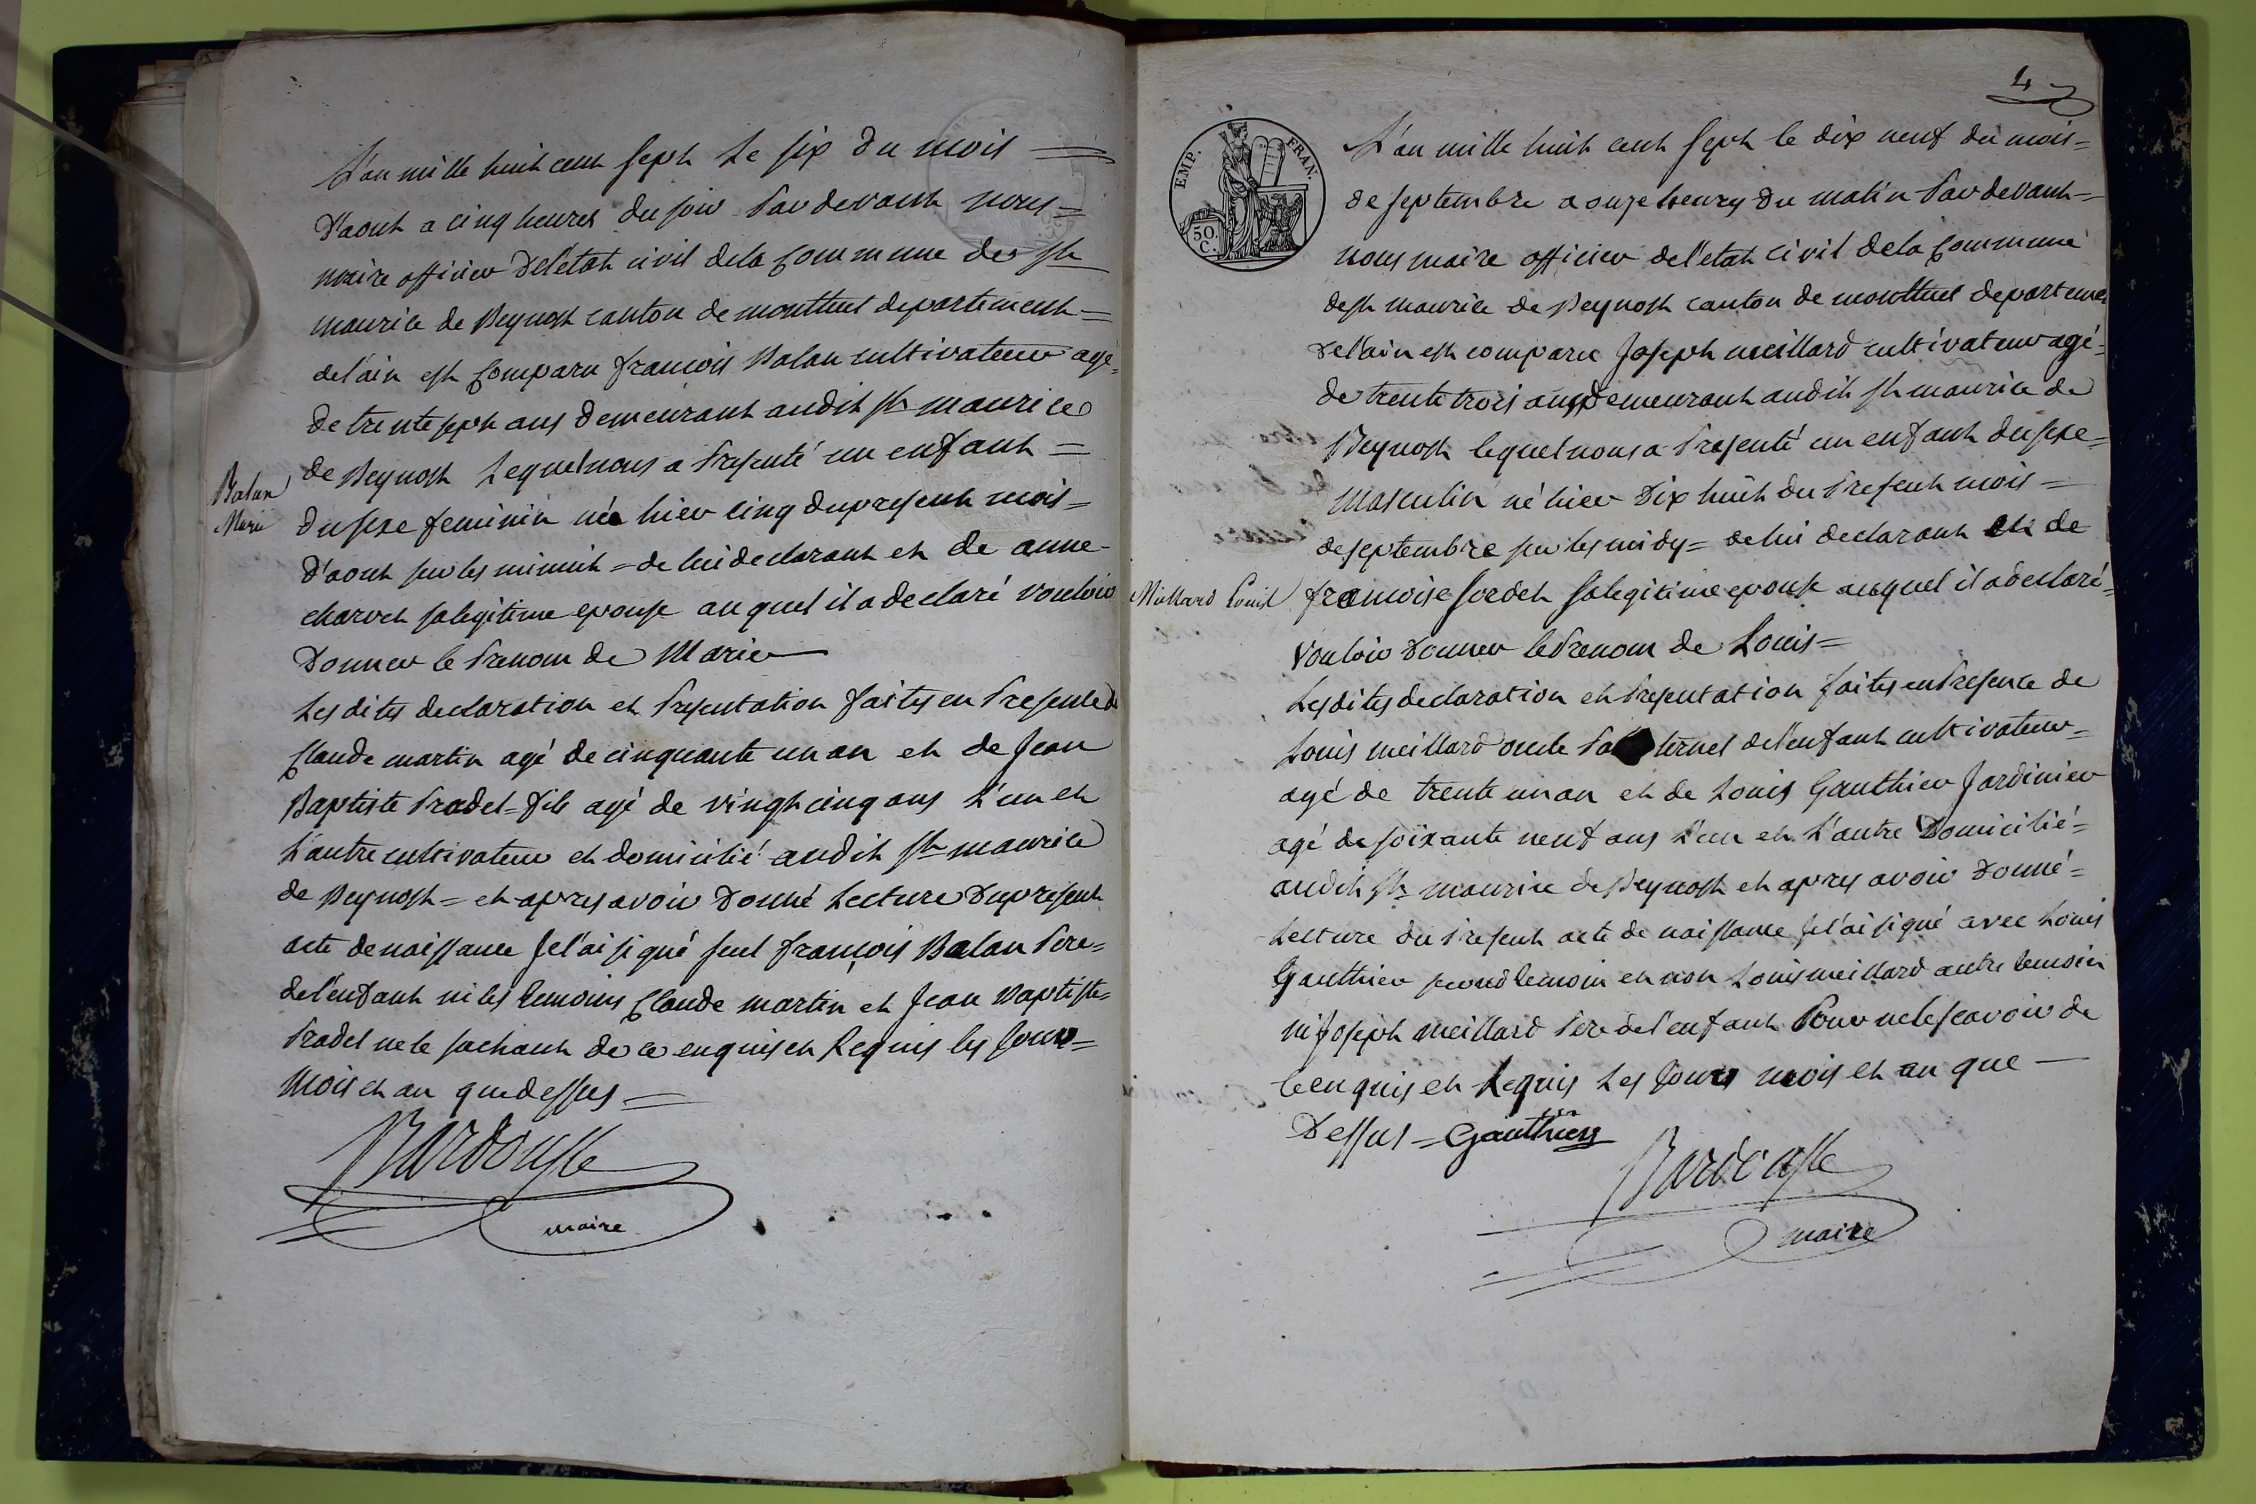 L'an mille huit cent sept Le six du mois =
D'aout a cinq heures du soir Par devant nous =
maire officier De l'etat civil de la Commune de St
maurice de Beynost canton de montluel departement =
de l'ain est Comparu francois Balan cultivateur agé =
de trente sept ans demeurant audit St maurice
de Beynost Lequel nous a Presenté un enfant =
Balan
Marie
du sexe feminin née hier cinq du present mois =
D'aout sur les minuit = de lui declarant et de anne
charvet sa legitime epouse auquel il a declaré vouloir
Donner le Prenom de Marie
Les dites declaration et Presentation faites en Presence de
Claude martin agé de cinquante un an et de Jean
Baptiste Pradel = fils agé de vingt cinq ans L'un et
L'autre cultivateur et domicilié audit St maurice
de Beynost = et apres avoir Donné Lecture Du present
acte de naissance Je l'ai signé seul françois Balan Pere =
de l'enfant ni les temoins Claude martin et Jean Baptiste =
Pradel ne le sachant de ce enquis et Requis les Jour =
Mois et an que dessus =
Bardousse
maire
4
EMP. FRAN.
50.
C.
L'an mille huit cent sept le dix neuf du mois =
de septembre a onze heures du matin Par devant =
nous maire officier de l'etat civil de la Commune
de St maurice de Beynost canton de montluel departemen
de l'ain est comparu Joseph meillard cultivateur agé =
de trente trois ans demeurant audit St maurice de
Beynost lequel nous a Presenté un enfant du sexe =
masculin né hier Dix huit du Present mois =
de septembre sur les midy = de lui declarant et de
Millard Louis
francoise sordet sa legitime epouse auquel il a declaré =
Vouloir Donner le Prenom de Louis =
Les dites declaration et Presentation faites en Presence de
Louis meillard oncle Paternel de l'enfant cultivateur =
agé de trente un an et de Louis Gauthier Jardinier
agé de soixante neuf ans L'un et L'autre Domicilié =
audit St maurice de Beynost et apres avoir Donné =
Lecture du Present acte de naissance Je l'ai signé avec Louis
Gauthier second temoin et non Louis meillard autre temoin
ni Joseph meillard Pere de l'enfant Pour ne le scavoir de
ce enquis et Requis Les Jours mois et an que
Dessus = Gauthier
Bardousse
maire